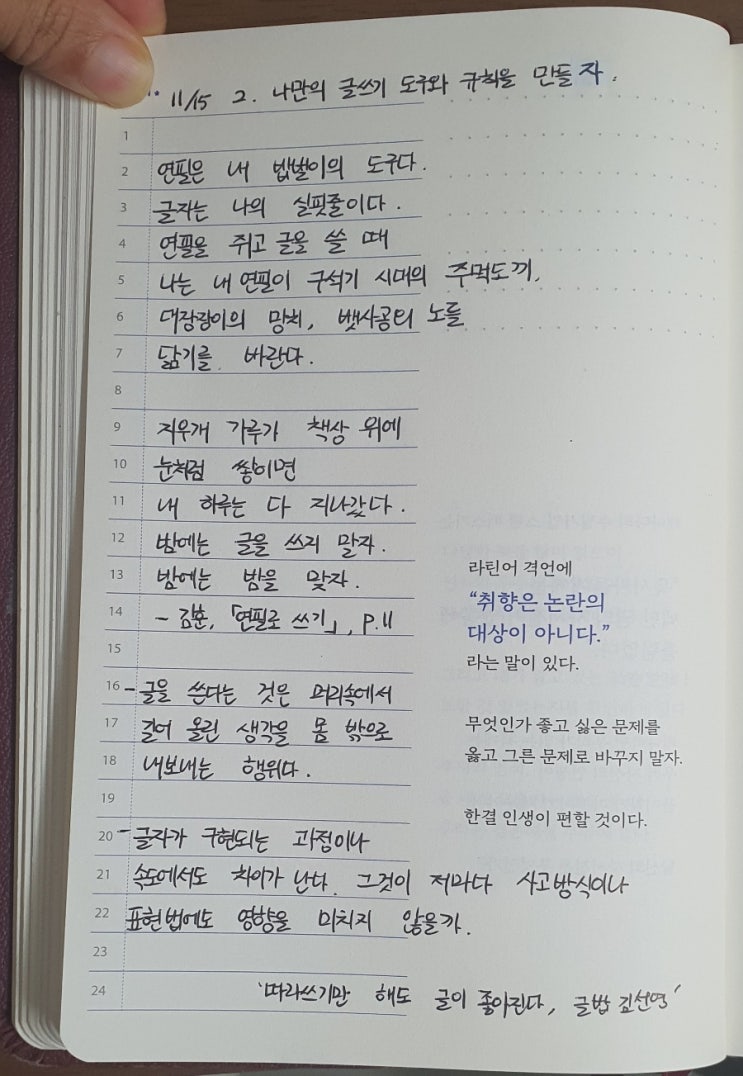 11/15 2. 나만의 글쓰기 도구와 규칙을 만들자.
1
2 연필은 내 밥벌이의 도구다.
3 글자는 나의 실핏줄이다.
4 연필을 쥐고 글을 쓸 때
5 나는 내 연필이 구석기 시대의 주먹도끼,
6 대장장이의 망치, 뱃사공의 노를
7 닮기를 바란다.
8
9 지우개 가루가 책상 위에
10 눈처럼 쌓이면
11 내 하루는 다 지나갔다.
12 밤에는 글을 쓰지 말자.
13 밤에는 밤을 맞자.
14 - 김훈, 「연필로 쓰기」, p.11
15
16 - 글을 쓴다는 것은 머리속에서
17 길어 올린 생각을 몸 밖으로
18 내보내는 행위다.
19
20 - 글자가 구현되는 과정이나
21 속도에서도 차이가 난다. 그것이 저마다 사고방식이나
22 표현법에도 영향을 미치지 않을까.
23
24 '따라쓰기만 해도 글이 좋아진다, 글밥 김선영'
라틴어 격언에
“취향은 논란의
대상이 아니다.”
라는 말이 있다.
무엇인가 좋고 싫은 문제를
옳고 그른 문제로 바꾸지 말자.
한결 인생이 편할 것이다.